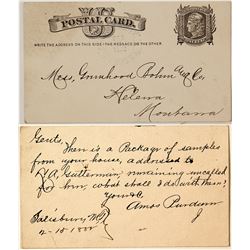 POSTAL CARD.
WRITE THE ADDRESS ON THIS SIDE - THE MESSAGE ON THE OTHER
Mess. Greenhood Bohm & Co,
Helena
Montana
Gents,
There is a Package of samples
from your house, addressed to
A, Gutterman, remaining uncalled
for him, what shall I do with them?
Yours &c.
Amos Purdum
Salisbury, M.T.